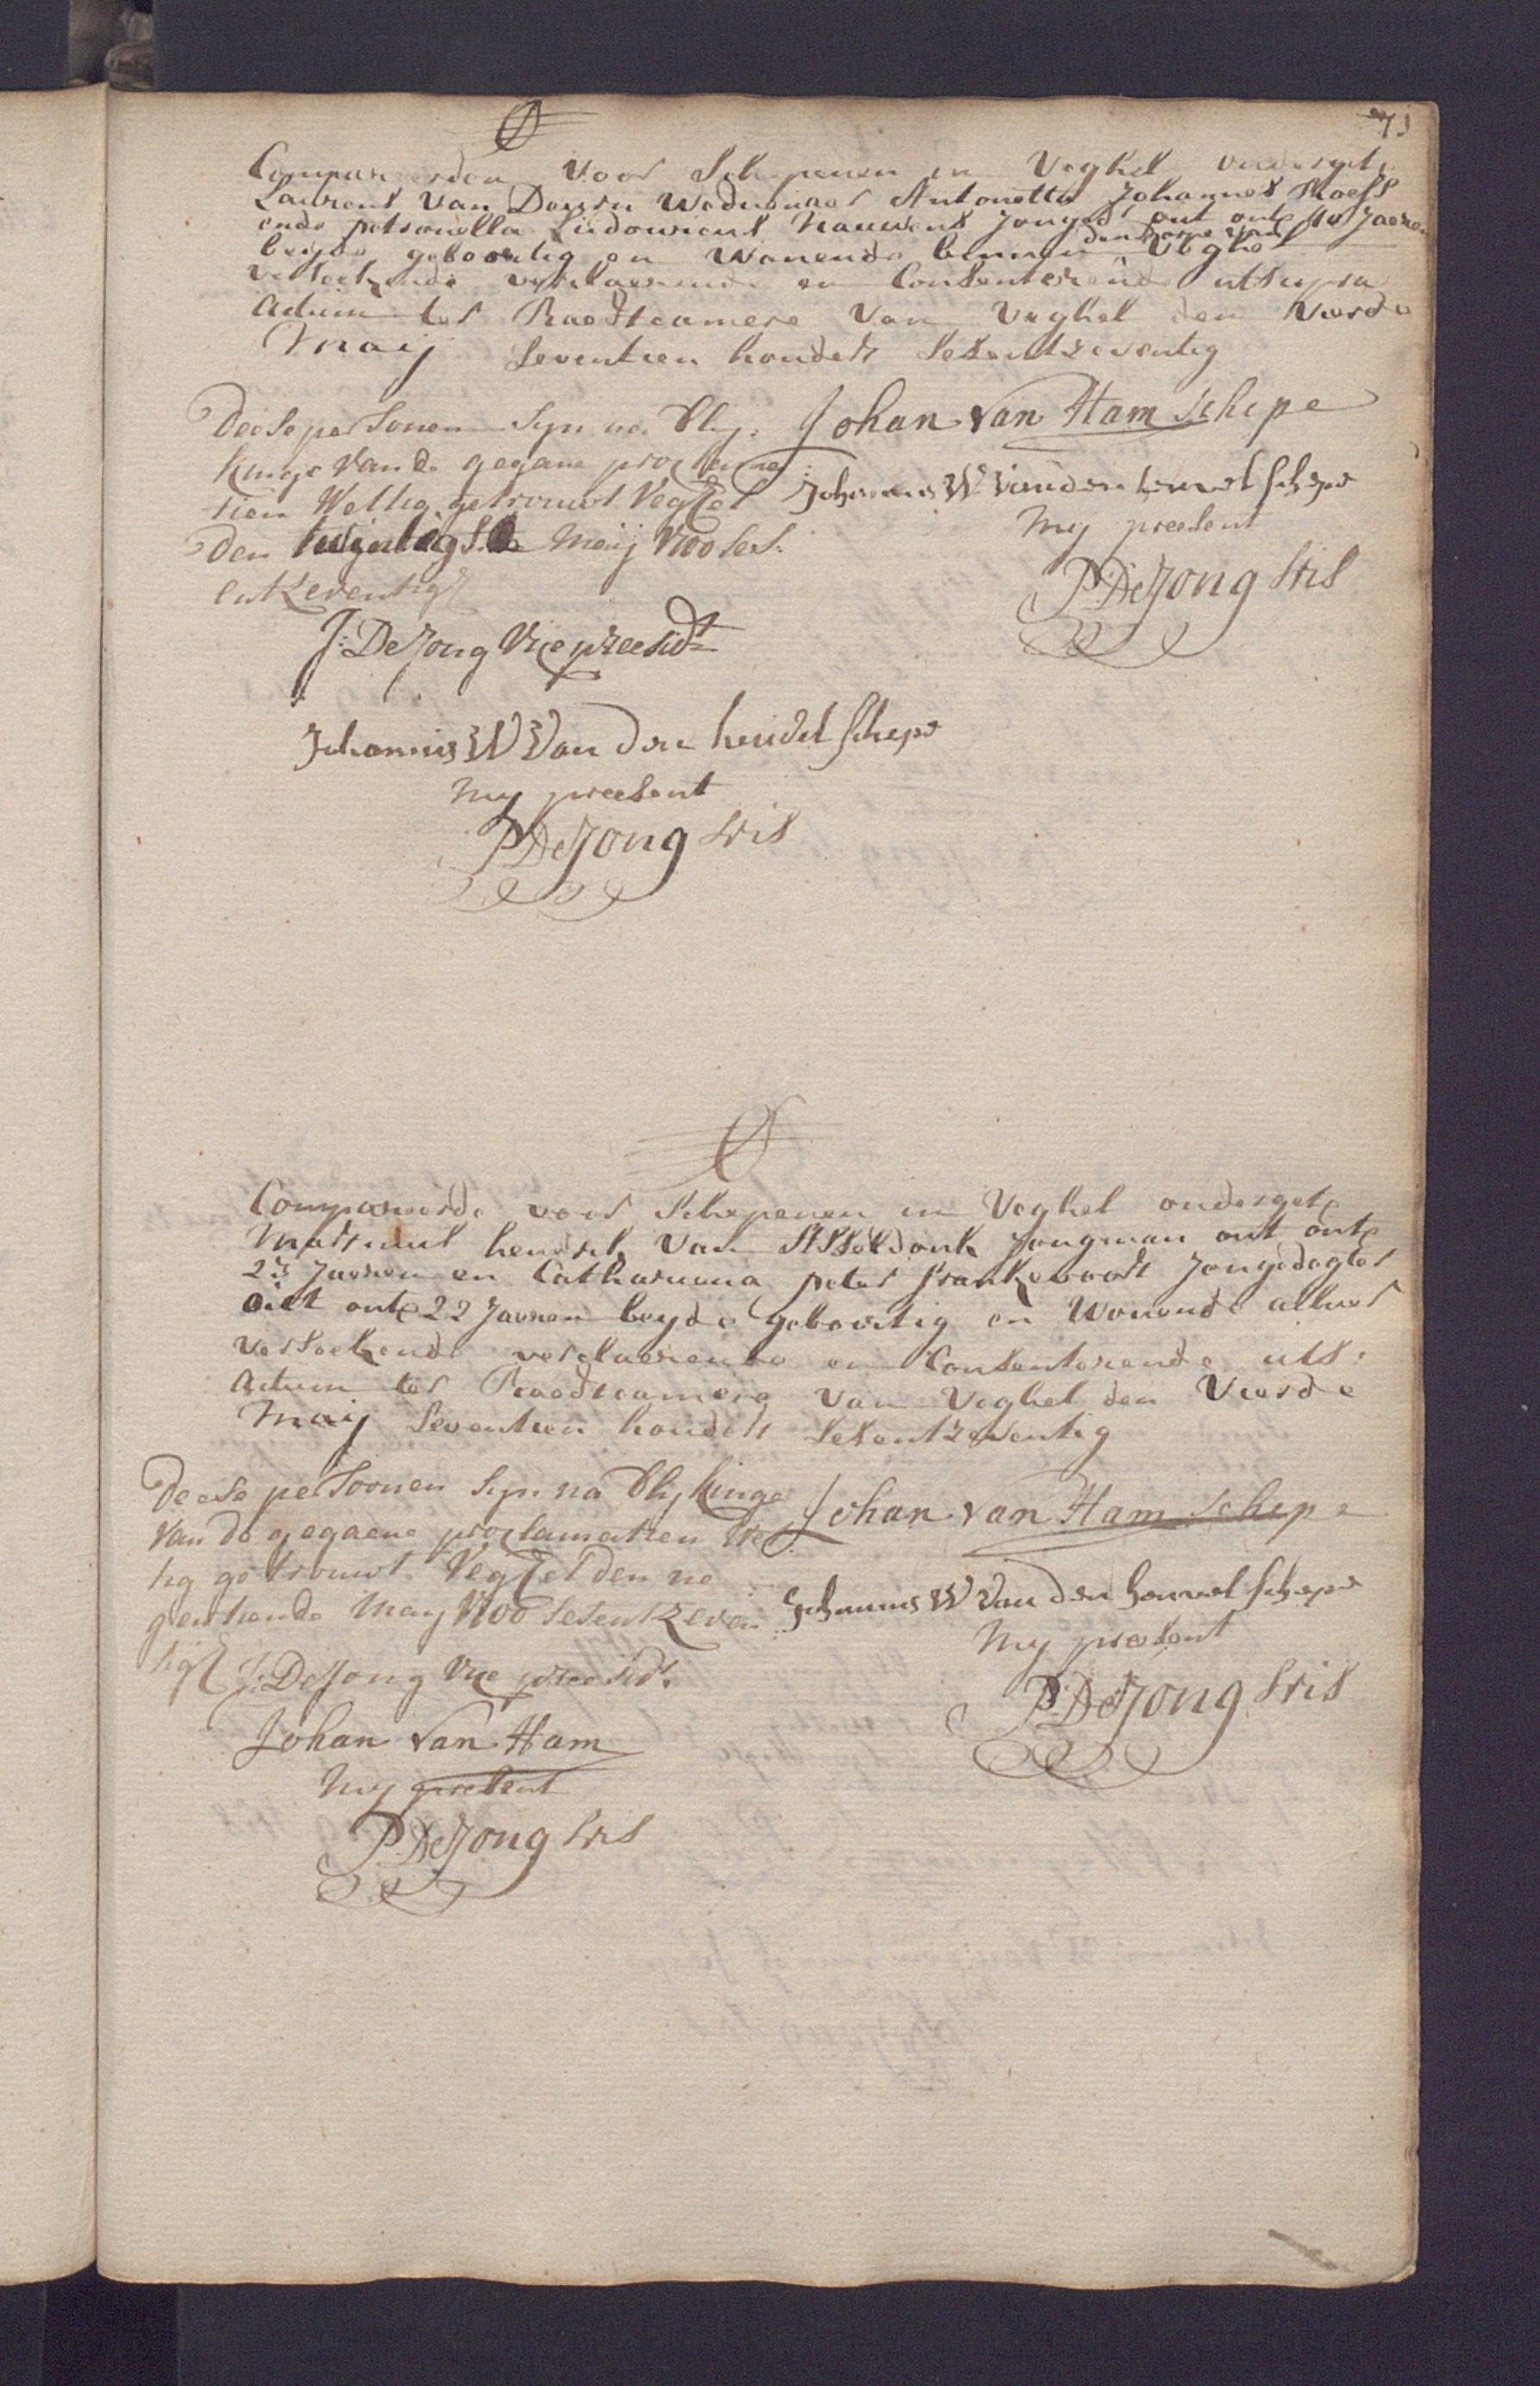 71
Compareerden voor Schepenen in Veghel onderget
Laurens van Deursen Weduwnaer Antonetta Johannes Roefs
ende petronella Ludovicus Nauwens Jonged out ontr 40 Jaeren
beijde geboortig en Wonende binnen den dorpe van Veghel
versoekende verclaerende en Consenterende utsupra
Actum ter Raedtcamere van Veghel den Vierde
Maij Seventien hondert Sesentzeventig
Deese persoonen syn na Blij:
kinge van de gegane proclama
tien Wettig getrouwt Veghel
den twijntigste Meij 1700 ses:
entzeventig
J: De Jong Vice preesidt
Johannis W Van den heuvel schepe
My preesent
P: De Jong Sris
Johan van Ham schepe
Johannis W van den heuvel schepe
My preesent
P: De Jong Sris
Compareerde voor Schepenen in Veghel onderget
Martinus hendrik van Asseldonk Jongman out ontr
23 Jaeren en Catharina peter frankevoort Jongedogter
out ontr 22 Jaeren beyde geboortig en Wonende alhier
versoekende verclaerende en Consenterende uts:
Actum ter Raedtcamere van Veghel den Vierde
Maij Seventien hondert Sesentzeventig
Deese persoonen syn na Blijkinge
van de gegaene proclamatien Wet
tig getrouwt Veghel den ne
gentiende May 1700 sesentzeven
tig J: De Jong Vice preesidt
Johan van Ham
My preesent
P: De Jong Sris
Johan van Ham schepe
Johannis W Van den heuvel schepe
My preesent
P: De Jong Sris